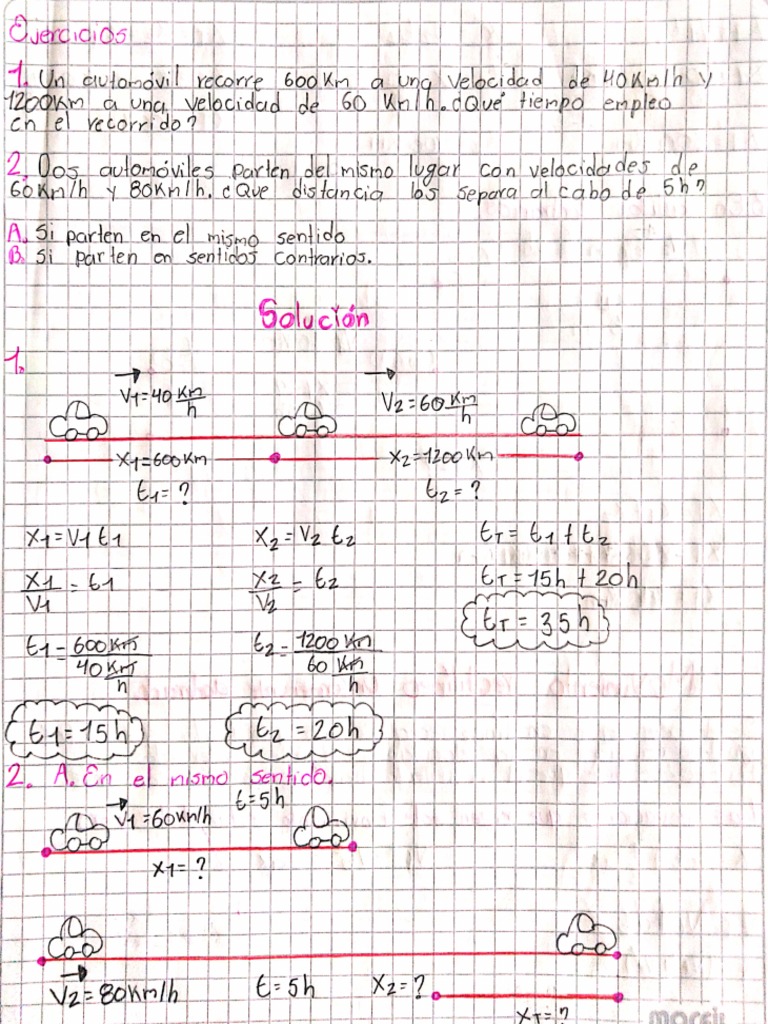 Ejercicios
1. Un automóvil recorre 600 Km a una velocidad de 40Km/h y
1200Km a una velocidad de 60 Km/h. ¿Qué tiempo empleo
en el recorrido?
2. Dos automóviles parten del mismo lugar con velocidades de
60Km/h y 80Km/h. ¿Que distancia los separa al cabo de 5h?
A. Si parten en el mismo sentido
B. Si parten en sentidos contrarios.
Solución
1.
V1=40 Km/h V2=60 Km/h
X1=600Km X2=1200Km
t1=? t2=?
X1=V1 t1 X2=V2 t2 tT= t1 + t2
X1/V1 = t1 X2/V2 = t2 tT=15h + 20h
tT= 35h
t1= 600Km/40 Km/h t2= 1200 Km/60 Km/h
t1=15h t2=20h
2. A. En el mismo sentido.
V1=60Km/h t=5h
X1=?
V2=80Km/h t=5h X2=?
XT=?